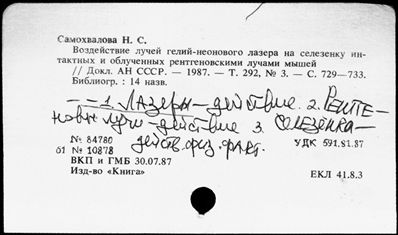 Самохвалова Н. С.
Воздействие лучей гелий-неонового лазера на селезенку ин-
тактных и облученных рентгеновскими лучами мышей
// Докл. АН СССР. — 1987. — Т. 292, № 3. — С. 729—733.
Библиогр. : 14 назв.
— — 1. Лазеры — действие. 2. Рентге-
новы лучи — действие 3. Селезенка —
действ. физ. факт.
№ 84780 УДК 591.81.87
б1 № 10878
ВКП и ГМБ 30.07.87
Изд-во «Книга» ЕКЛ 41.8.3